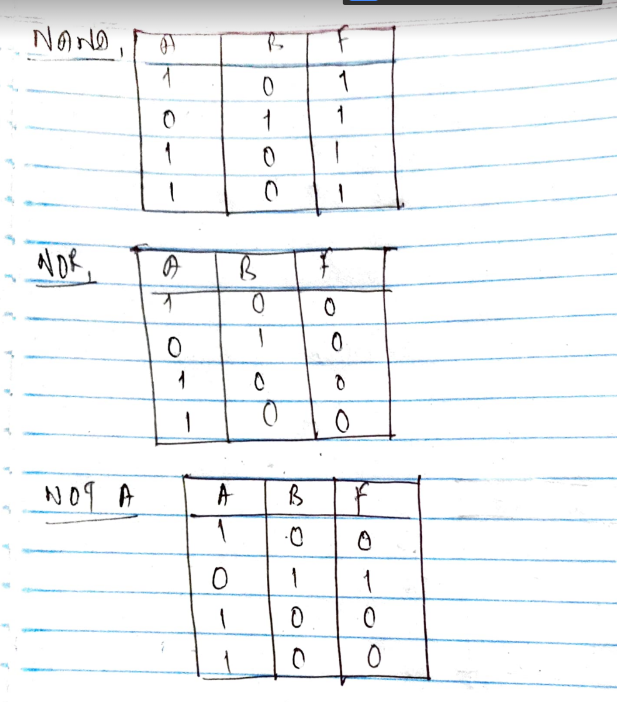 NAND, A B F
1 0 1
0 1 1
1 0 1
1 0 1
NOR, A B F
1 0 0
0 1 0
1 0 0
1 0 0
NOT A A B F
1 0 0
0 1 1
1 0 0
1 0 0